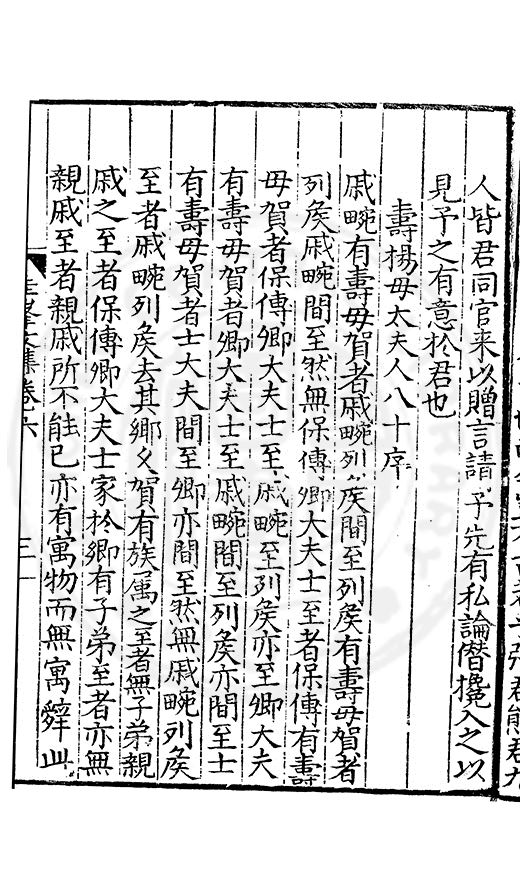 人皆君同官来以贈言請予先有私論僭攙入之以
見予之有意於君也
壽楊母太夫人八十序
戚畹有壽母賀者戚畹列矦間至列矦有壽母賀者
列矦戚畹間至然無保傅卿大夫士至者保傅有壽
母賀者保傅卿大夫士至戚畹至列矦亦至卿大夫
有壽母賀者卿大夫士至戚畹間至列矦亦間至士
有壽母賀者士大夫間至卿亦間至然無戚畹列矦
至者戚畹列矦去其鄉久賀有族属之至者無子弟親
戚之至者保傅卿大夫士家於鄉有子弟至者亦無
親戚至者親戚所不能已亦有寓物而無寓辭此
文集卷六
三